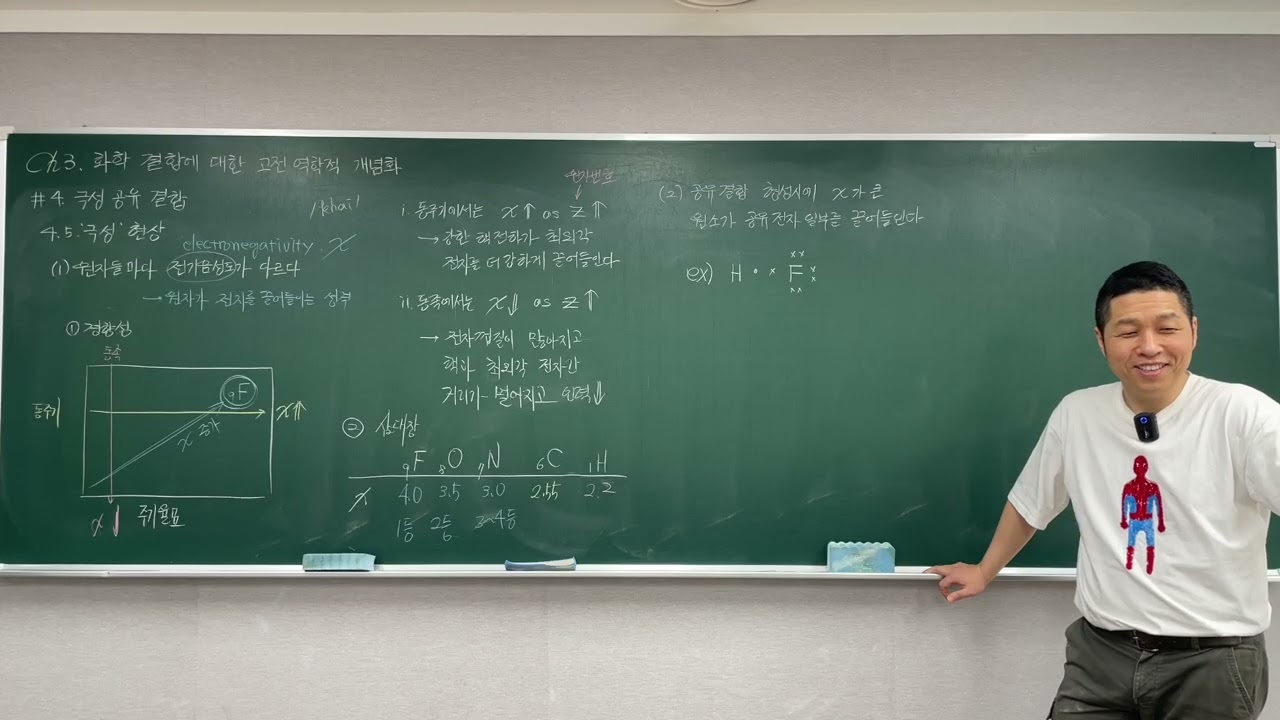 Ch3. 화학 결합에 대한 고전역학적 개념화
#4. 극성 공유 결합
4.5. '극성' 현상
/khai/
electronegativity. χ
(1) 원자들마다 전기음성도가 다르다
→ 원자가 전자를 끌어들이는 성격
① 경향성
동족
동주기
₉F
χ↑
χ 증가
χ↓
주기율표
원자번호
i. 동주기에서는 χ↑ as Z↑
→ 강한 핵전하가 최외각
전자를 더 강하게 끌어들인다
ii. 동족에서는 χ↓ as Z↑
→ 전자껍질이 많아지고
핵과 최외각 전자간
거리가 멀어지고 인력↓
② 삼대장
₉F ₈O ₇N ₆C ₁H
χ 4.0 3.5 3.0 2.55 2.2
1등 2등 3~4등
(2) 공유결합 형성시에 χ가 큰
원소가 공유전자 일부를 끌어들인다
ex) H • × F